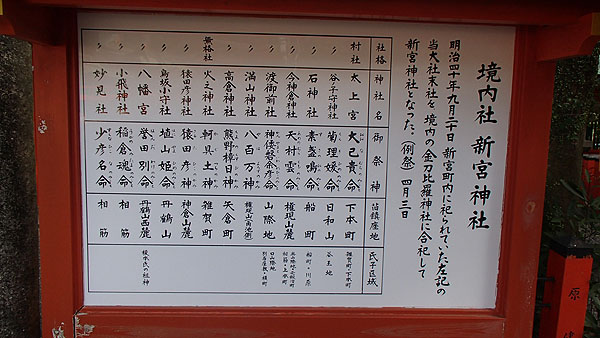 境内社 新宮神社
明治四十年九月二十日新宮町内に祀られていた左記の
当大社末社を境内の金刀比羅神社に合祀して
新宮神社となった。(例祭)四月三日
社格 神社名 御祭神 旧鎮座地 氏子区域
村社 大上宮 大己貴命 下本町 雑賀町・下本町
〃 谷子守神社 菊理媛命 日和山 谷王地
〃 石神社 素盞鳴命 船町 船町・川原
〃 今神倉神社 天村雲命 権現山麓
〃 渡御前社 神倭磐余彦命 山際地
〃 満山神社 八百万神
〃 高倉神社 熊野樟日神 矢倉町
無格社 火之神社 軻具土神 雑賀町
〃 猿田彦神社 猿田彦神 神倉山麓
〃 鳥坂小守社 埴山姫命 丹鶴山
〃 八幡宮 誉田別命 丹鶴山西麓 榎本氏の祖神
〃 小飛神社 稲倉魂命 相筋
〃 妙見社 少彦名命 相筋